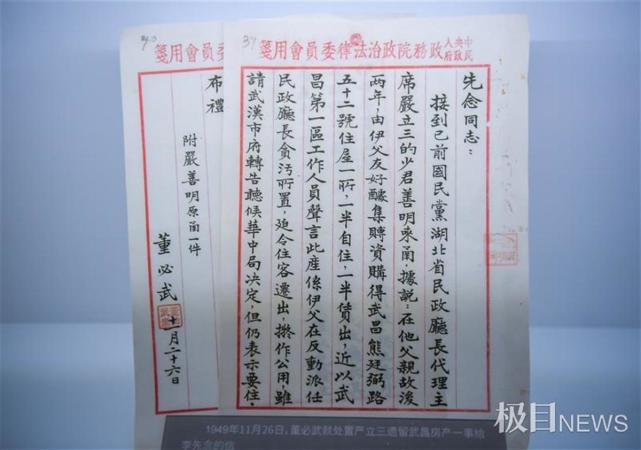 37
中央人民政府政務院政治法律委員會用箋
先念同志：
接到已前國民黨湖北省民政廳長代理主
席嚴立三的少君善明來函，據說：在他父親故後
两年，由伊父友好醵集賻資購得武昌熊廷弼路
五十二號住屋一所，一半自住，一半賃出，近以武
昌第一區工作人員聲言此產係伊父在反動派任
民政廳長貪污所置，廹令住客遷出，撥作公用，雖
請武漢市府轉告聽候華中局决定，但仍表示要住。
委員會用箋
布禮
附嚴善明原函一件
董必武
十一月二十六日
1949年11月26日，董必武就处置严立三遗留武昌房产一事给
李先念的信
极目NEWS